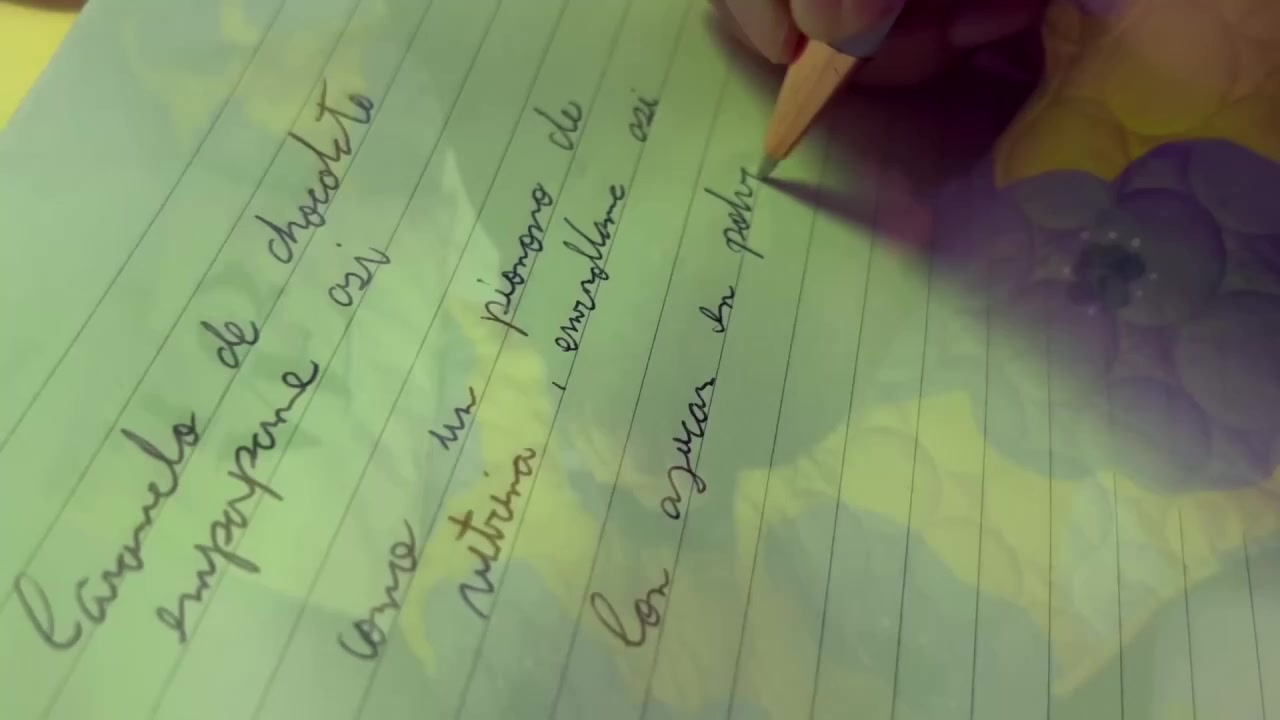 Caramelo de chocolate
empapame asi
como un pionono de
vitrina, enrollame asi
Con azucar en polv